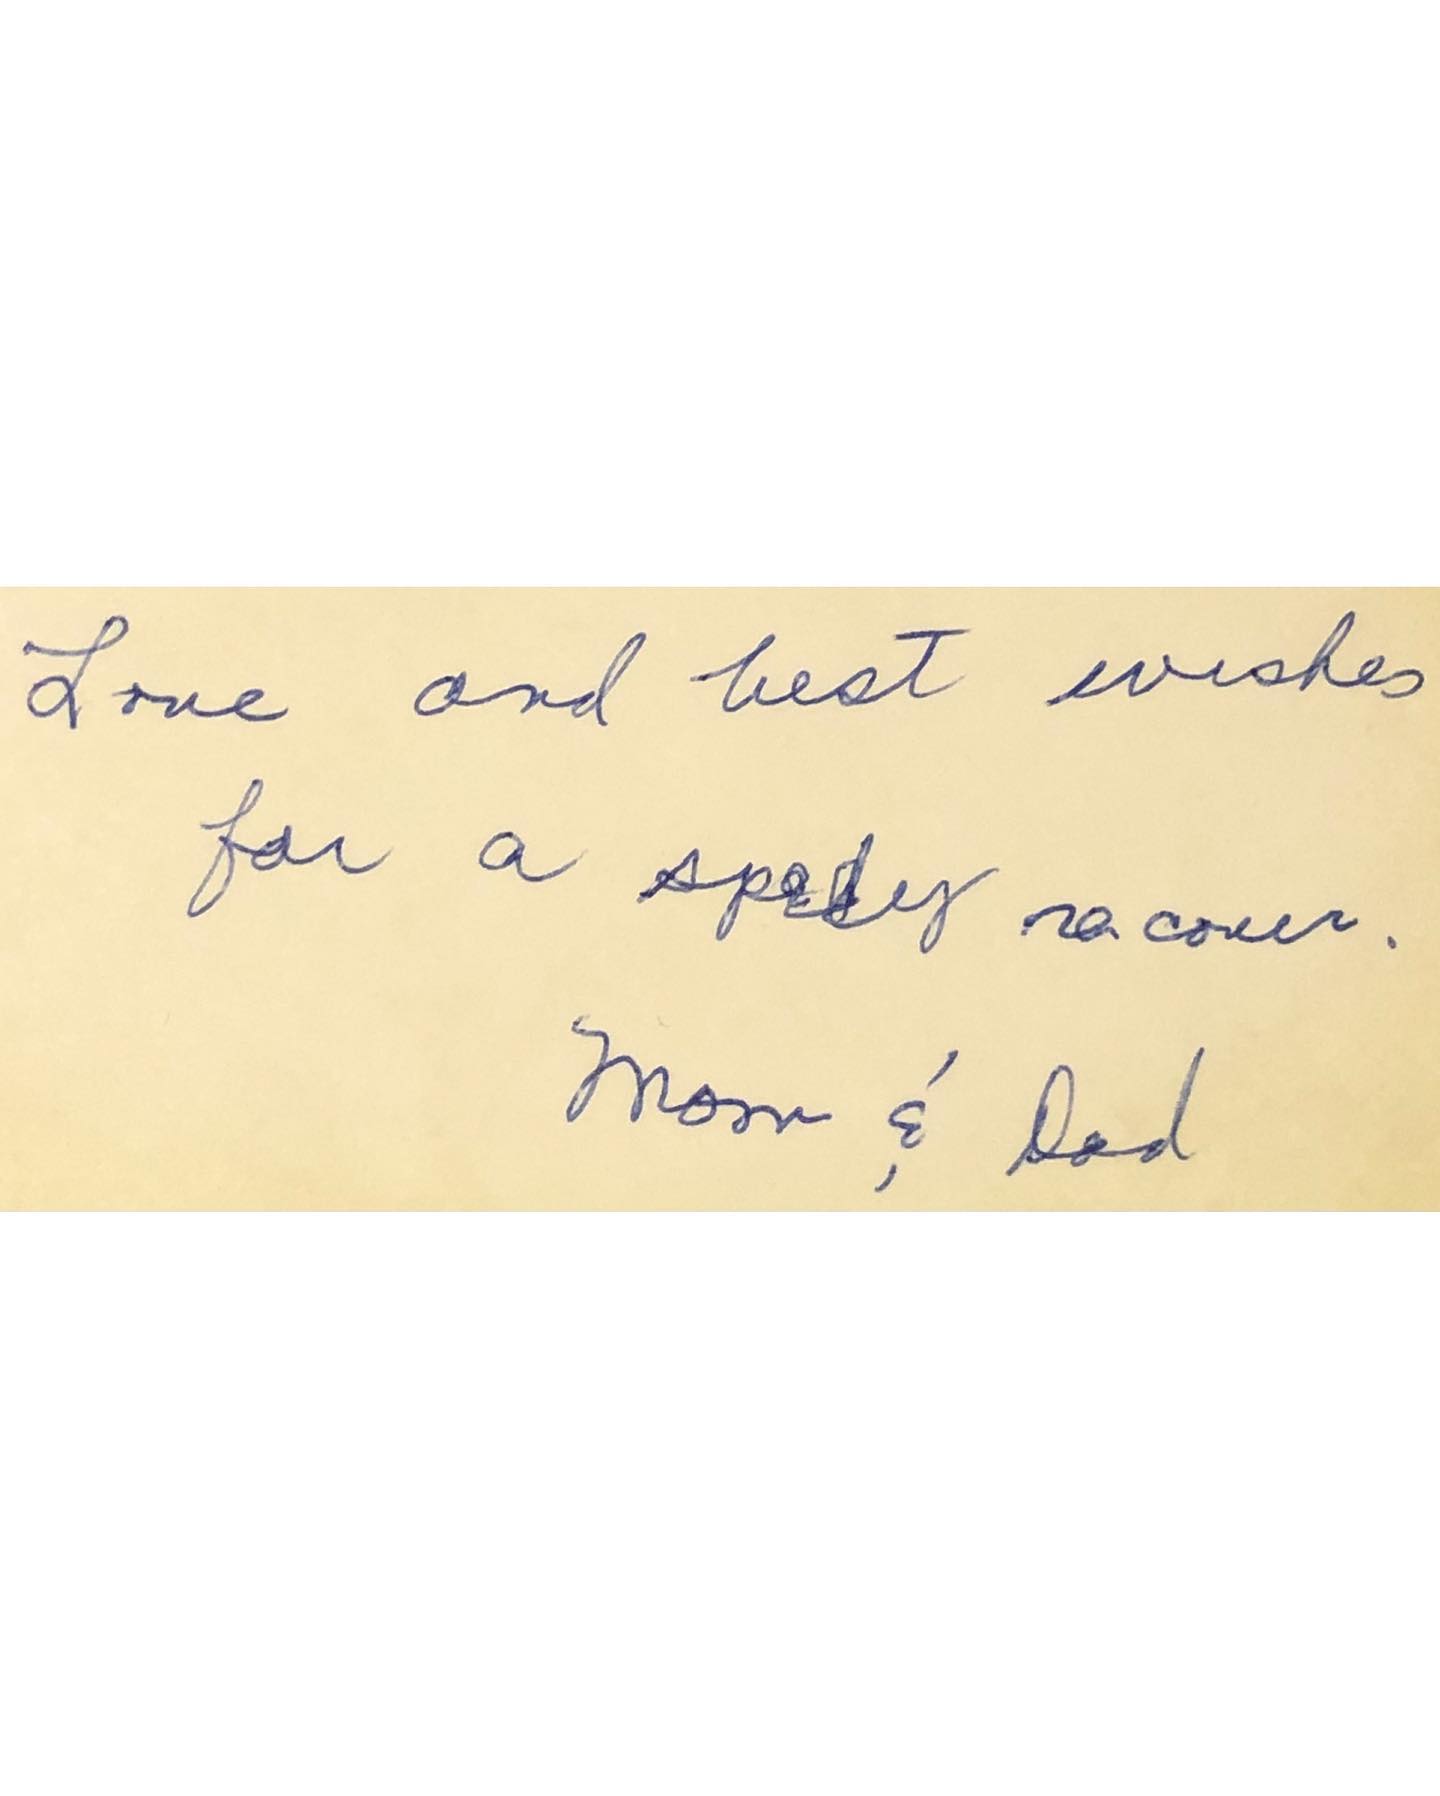 Love and best wishes
for a spedey recover.
Mom & Dad